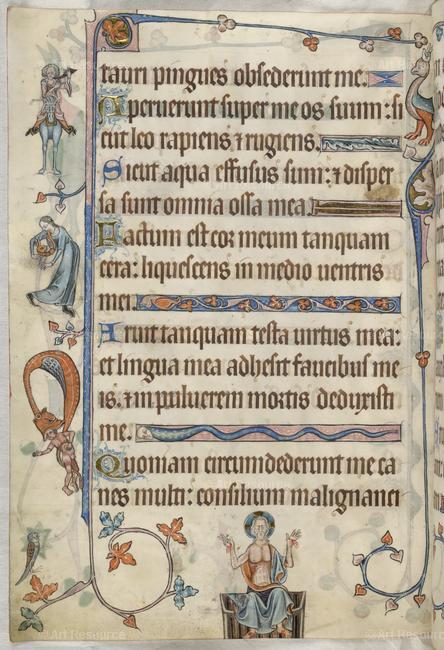 tauri pingues obsederunt me.
Aperuerunt super me os suum: si
cut leo rapiens ⁊ rugiens.
Sicut aqua effusus sum: ⁊ disper
sa sunt omnia ossa mea.
Factum est cor meum tanquam
cera: liquescens in medio uentris
mei.
Aruit tanquam testa uirtus mea:
et lingua mea adhesit faucibus me
is. ⁊ in puluerem mortis deduxisti
me.
Quoniam circumdederunt me ca
nes multi: consilium malignanci
Art Resource
Art Resource